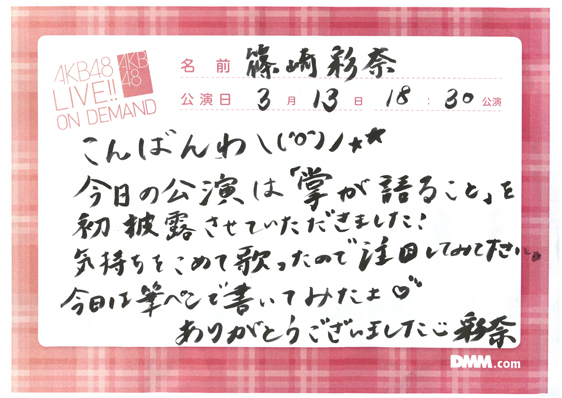 AKB48
LIVE!!
ON DEMAND
AKB
48
名前 篠崎彩奈
公演日 3月13日 18:30公演
こんばんわ\(^o^)/★★
今日の公演は「掌が語ること」を
初披露させていただきました!
気持ちをこめて歌ったので注目してみてださい。
今日は筆ペンで書いてみたよ♡
ありがとうございました☺ 彩奈
DMM.com